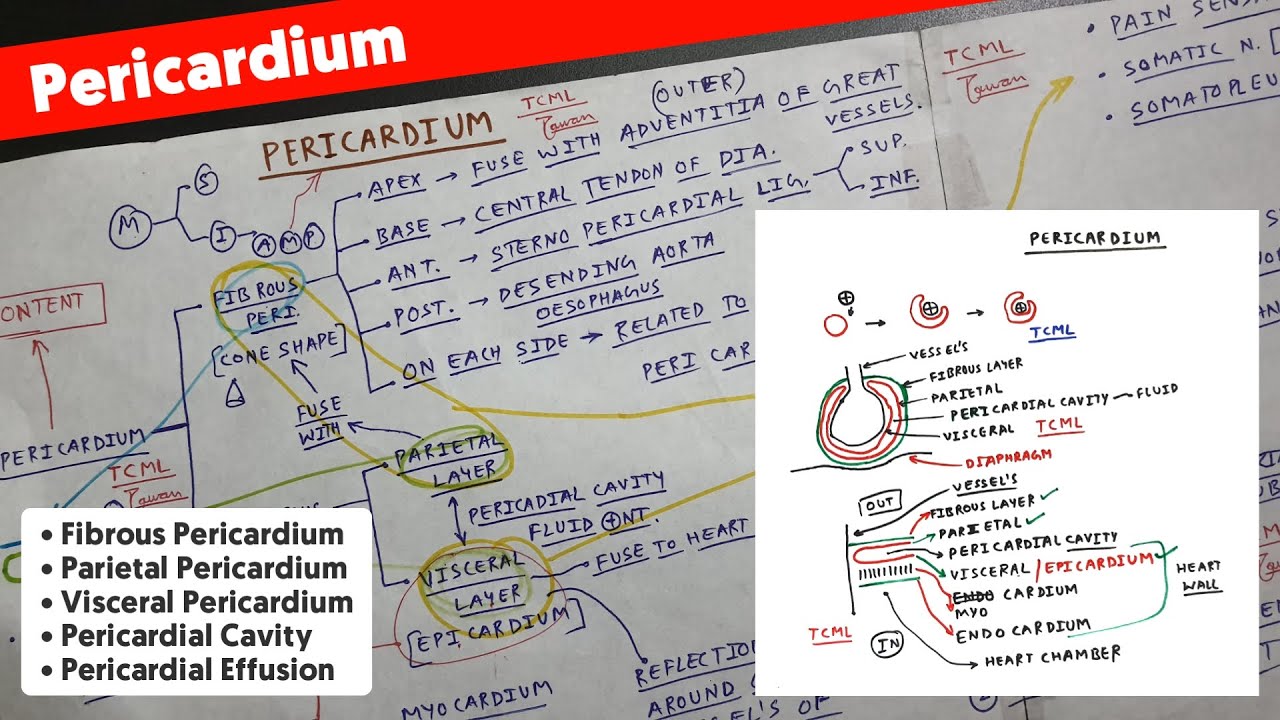 Pericardium
PERICARDIUM
TCML
Pawan
M
S
I
A M P
FIBROUS
PERI.
[CONE SHAPE]
APEX → FUSE WITH ADVENTITIA OF GREAT
(OUTER)
VESSELS.
BASE → CENTRAL TENDON OF DIA.
ANT. → STERNO PERICARDIAL LIG.
SUP.
INF.
POST. → DESENDING AORTA
OESOPHAGUS
ON EACH SIDE → RELATED TO
PERI CAR
FUSE
WITH
ONTENT
PERICARDIUM
TCML
Pawan
PARIETAL
LAYER
PERICADIAL CAVITY
FLUID ⊕NT.
VISCERAL
LAYER
[EPICARDIUM]
FUSE TO HEART
REFLECTION
AROUND
OF
MYOCARDIUM
TCML
Pawan
• PAIN SENS
• SOMATIC N.
• SOMATOPLEU
• Fibrous Pericardium
• Parietal Pericardium
• Visceral Pericardium
• Pericardial Cavity
• Pericardial Effusion
PERICARDIUM
TCML
VESSEL'S
FIBROUS LAYER
PARIETAL
PERICARDIAL CAVITY — FLUID
VISCERAL
TCML
DIAPHRAGM
OUT
VESSEL'S
FIBROUS LAYER ✓
PARIETAL ✓
PERICARDIAL CAVITY
VISCERAL / EPICARDIUM
ENDO CARDIUM
MYO
ENDO CARDIUM
HEART
WALL
TCML
IN
HEART CHAMBER